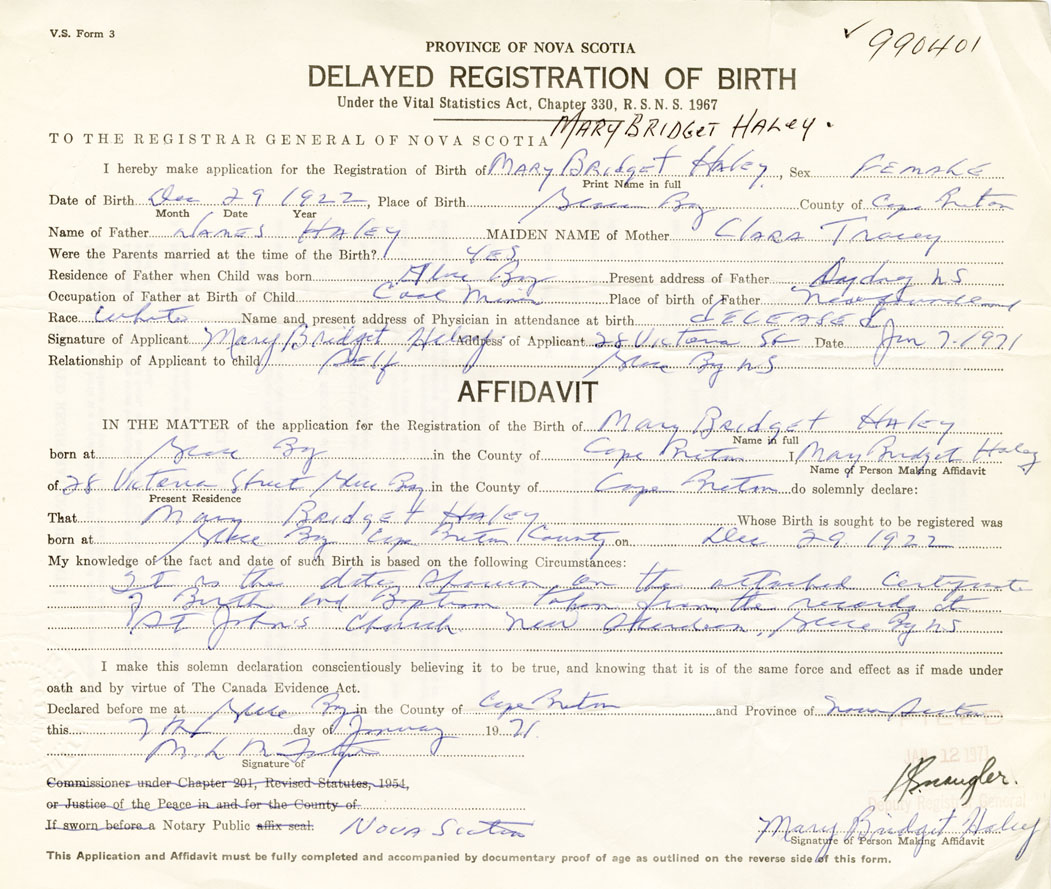 V.S. Form 3
✓ 990401
PROVINCE OF NOVA SCOTIA
DELAYED REGISTRATION OF BIRTH
Under the Vital Statistics Act, Chapter 330, R.S.N.S. 1967
TO THE REGISTRAR GENERAL OF NOVA SCOTIA MARY BRIDGET HALEY.
I hereby make application for the Registration of Birth of Mary Bridget Haley, Sex FEMALE
Print Name in full
Date of Birth Dec 29 1922, Place of Birth Glace Bay County of Cape Breton
Month Date Year
Name of Father JAMES HALEY MAIDEN NAME of Mother Clara Tracey
Were the Parents married at the time of the Birth? YES
Residence of Father when Child was born Glace Bay Present address of Father Sydney NS
Occupation of Father at Birth of Child Coal Miner Place of birth of Father Newfoundland
Race White Name and present address of Physician in attendance at birth DECEASED
Signature of Applicant Mary Bridget Haley Address of Applicant 28 Victoria St Date Jan 7-1971
Relationship of Applicant to child Self Glace Bay NS
AFFIDAVIT
IN THE MATTER of the application for the Registration of the Birth of Mary Bridget HALEY
Name in full
born at Glace Bay in the County of Cape Breton I Mary Bridget Haley
Name of Person Making Affidavit
of 28 Victoria Street Glace Bay in the County of Cape Breton do solemnly declare:
Present Residence
That Mary Bridget HALEY Whose Birth is sought to be registered was
born at Glace Bay Cape Breton County on Dec 29 1922
My knowledge of the fact and date of such Birth is based on the following Circumstances:
It is the date shown on the attached Certificate
of Birth and Baptism taken from the records at
St John's Church New Aberdeen, Glace Bay NS
I make this solemn declaration conscientiously believing it to be true, and knowing that it is of the same force and effect as if made under
oath and by virtue of The Canada Evidence Act.
Declared before me at Glace Bay in the County of Cape Breton and Province of Nova Scotia
this 7th day of January 1971
M. L.
Signature of
JAN 12 1971
Commissioner under Chapter 201, Revised Statutes, 1954,
or Justice of the Peace in and for the County of
Deputy Registrar General
If sworn before a Notary Public affix seal. Nova Scotia
Mary Bridget Haley
Signature of Person Making Affidavit
This Application and Affidavit must be fully completed and accompanied by documentary proof of age as outlined on the reverse side of this form.